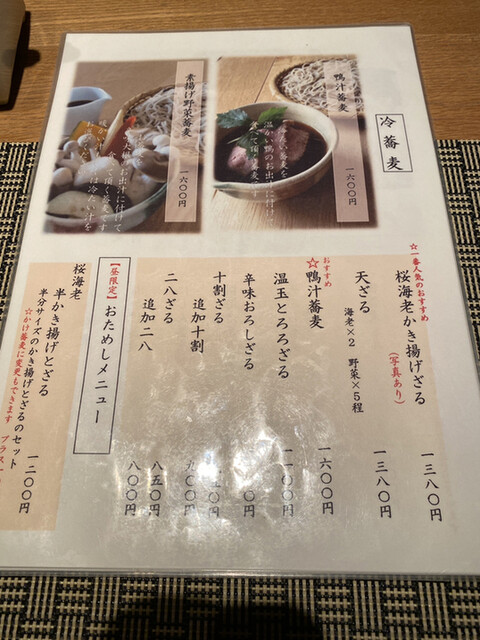 冷蕎麦
鴨汁蕎麦
一六〇〇円
素揚げ野菜蕎麦
一六〇〇円
☆一番人気のおすすめ
桜海老かき揚げざる
(写真あり)
一三八〇円
天ざる
海老×2 野菜×5程
一三八〇円
おすすめ
☆鴨汁蕎麦
一六〇〇円
温玉とろろざる
一一〇〇円
辛味おろしざる
〇〇円
十割ざる
追加十割
九〇〇円
二八ざる
八五〇円
追加二八
八〇〇円
【昼限定】おためしメニュー
桜海老
半かき揚げとざる
一二〇〇円
半分サイズのかき揚げとざるのセット
☆かけ蕎麦に変更もできます プラス